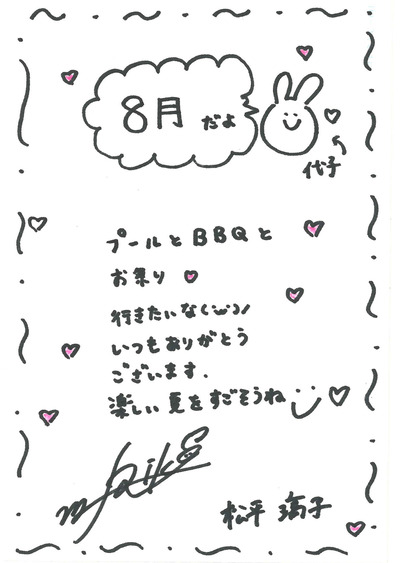 8月だよ
代子
プールとBBQと
お祭り
行きたいな(･ω･)ﾉ
いつもありがとう
ございます.
楽しい夏をすごそうね
松平 璃子